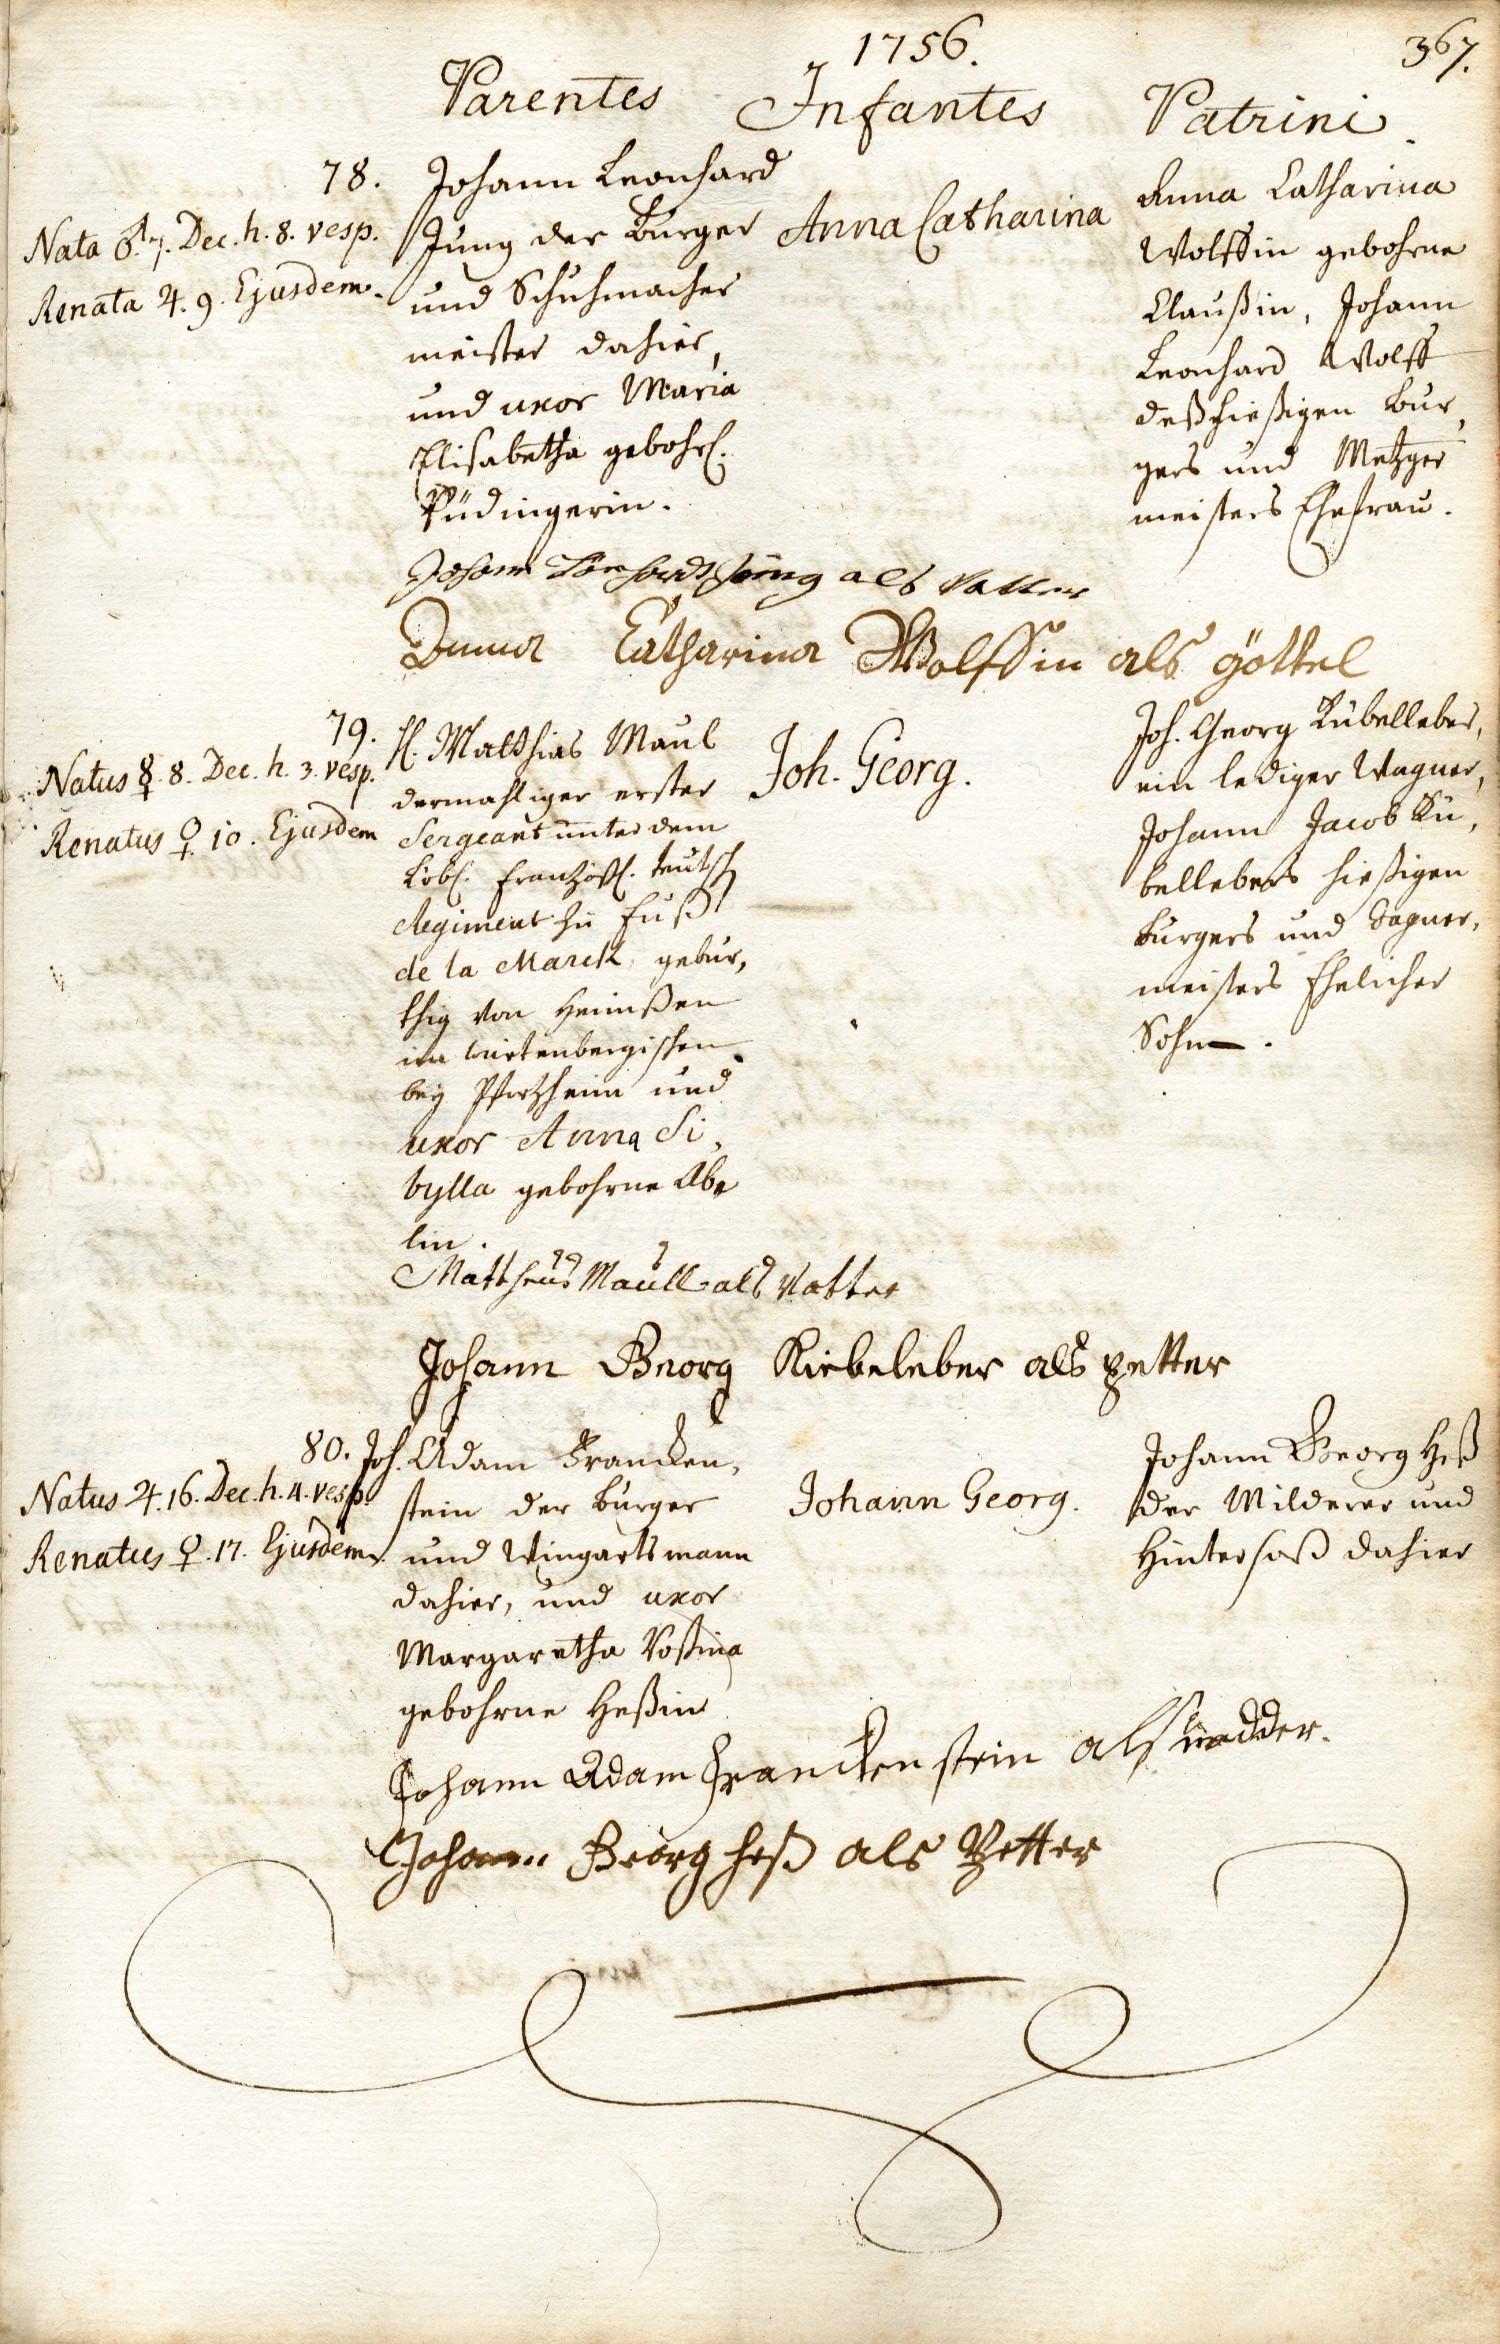 1756.
367.
Parentes Infantes Patrini.
78.
Nata ♂. 7. Dec. h. 8. vesp.
Renata ♃. 9. Ejusdem.
Johann Leonhard
Jung der Burger
und Schuhmacher
meister dahier,
und uxor Maria
Elisabetha gebohr.
Püdingerin.
Anna Catharina
Anna Catharina
Wolffin gebohrne
Claußin, Johann
Leonhard Wolff
deß hießigen Bur,
gers und Metzger
meisters Ehefrau.
Johann Jung als Vatter
Anna Catharina Wolffin als göttel
79.
Natus ☿. 8. Dec. h. 3. vesp.
Renatus ♀. 10. Ejusdem
H. Matthias Maul
dermahliger erster
Sergeant unter dem
Löbl. Französ. teutsch
Regiment zu Fuß
de la Marck, gebür,
thig von Heimßen
im Würtenbergischen
bey Pfortzheim und
uxor Anna Si,
bylla gebohrne Abe
lin.
Joh. Georg.
Joh. Georg Kübelleber,
ein lediger Wagner,
Johann Jacob Kü,
bellebers hießigen
Burgers und Wagner,
meisters Ehelicher
Sohn.
Mattheus Maull als Vatter
Johann Georg Kiebeleber als petter
80.
Natus ♃. 16. Dec. h. 4. vesp.
Renatus ♀. 17. Ejusdem.
Joh. Adam Francken,
stein der Burger
und Wingartsmann
dahier, und uxor
Margaretha Rosina
gebohrne Heßin
Johann Georg.
Johann Georg Heß
der Milderer und
Hintersaß dahier
Johann Adam Franckenstein als vadder.
Johann Georg Heß als Petter